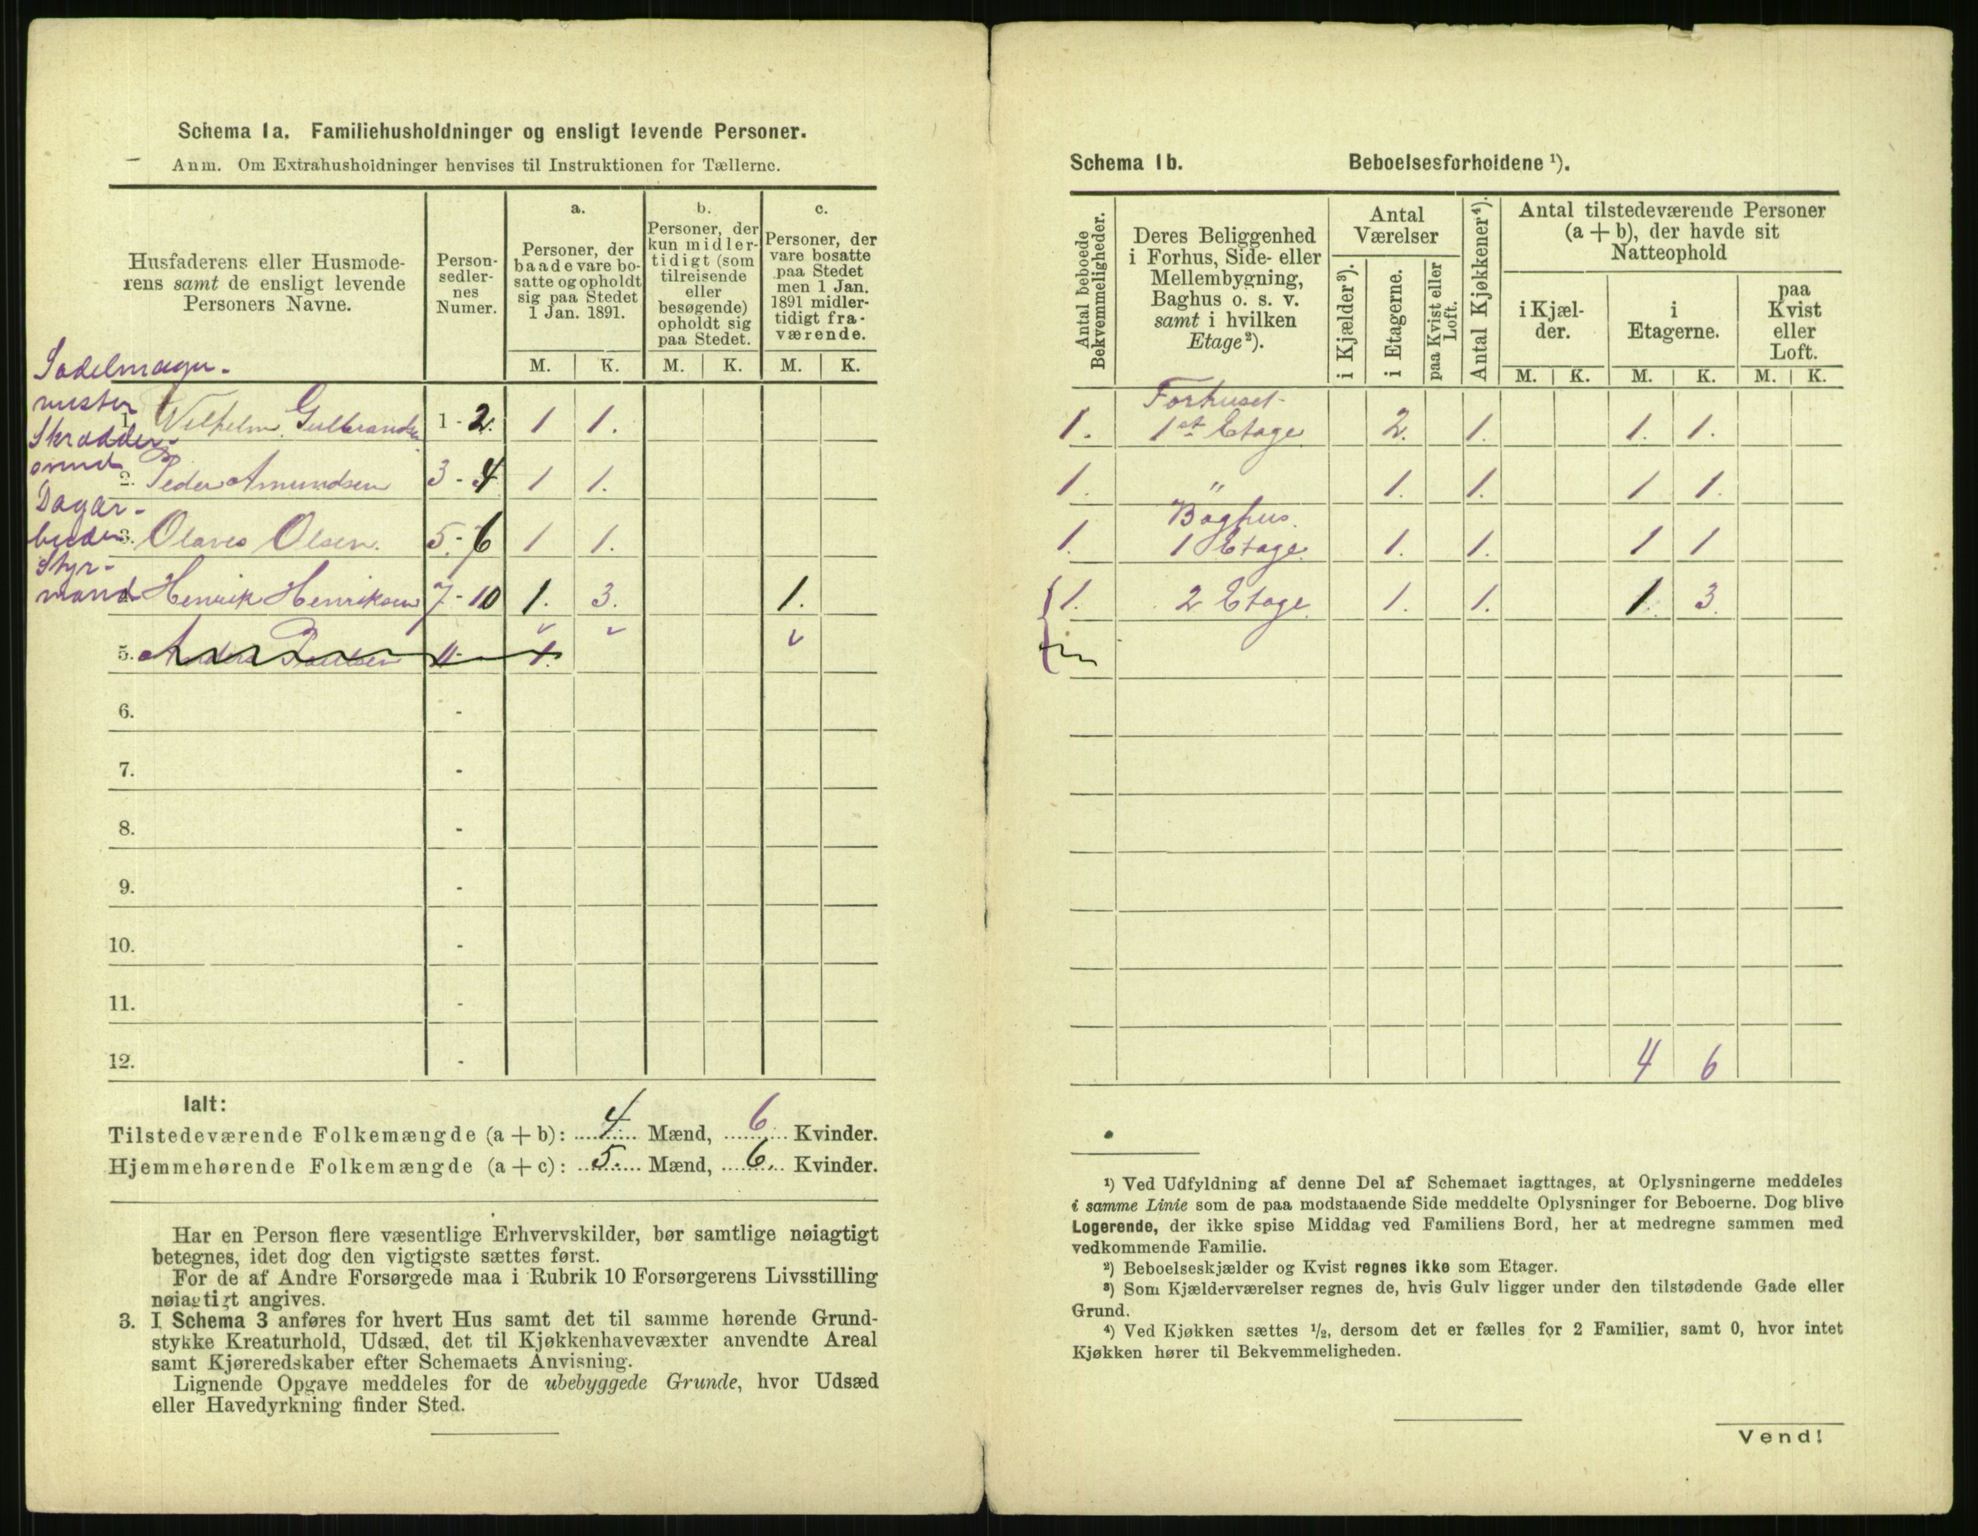 Schema 1a. Familiehusholdninger og ensligt levende Personer.
Anm. Om Extrahusholdninger henvises til Instruktionen for Tællerne.
Husfaderens eller Husmode-
rens samt de ensligt levende
Personers Navne.
Person-
sedler-
nes
Numer.
a.
Personer, der
baade vare bo-
satte og opholdt
sig paa Stedet
1 Jan. 1891.
b.
Personer, der
kun midler-
tidigt (som
tilreisende
eller
besøgende)
opholdt sig
paa Stedet.
c.
Personer, der
vare bosatte
paa Stedet
men 1 Jan.
1891 midler-
tidigt fra-
værende.
M. K. M. K. M. K.
Sadelmager-
mester
1. Vilhelm Gulbrandsen 1 - 2. 1 1.
Skrædder-
svend
2. Peder Amundsen 3 - 4 1 1.
Dagar-
beider
3. Olaves Olsen. 5 - 6 1 1.
Styr-
mand Henrik Henriksen 7 - 10 1. 3. 1.
5. 11 - 1.
6. -
7. -
8. -
9. -
10. -
11. -
12. -
Ialt:
Tilstedeværende Folkemængde (a + b): 4. Mænd, 6 Kvinder.
Hjemmehørende Folkemængde (a + c): 5. Mænd, 6. Kvinder.
Har en Person flere væsentlige Erhvervskilder, bør samtlige nøiagtigt
betegnes, idet dog den vigtigste sættes først.
For de af Andre Forsørgede maa i Rubrik 10 Forsørgerens Livsstilling
nøiagtigt angives.
3. I Schema 3 anføres for hvert Hus samt det til samme hørende Grund-
stykke Kreaturhold, Udsæd, det til Kjøkkenhavevæxter anvendte Areal
samt Kjøreredskaber efter Schemaets Anvisning.
Lignende Opgave meddeles for de ubebyggede Grunde, hvor Udsæd
eller Havedyrkning finder Sted.
Schema 1b. Beboelsesforholdene ¹).
Antal beboede
Bekvemmeligheder.
Deres Beliggenhed
i Forhus, Side- eller
Mellembygning,
Baghus o. s. v.
samt i hvilken
Etage²).
Antal
Værelser
i Kjælder³).
i Etagerne.
paa Kvist eller
Loft.
Antal Kjøkkener⁴).
Antal tilstedeværende Personer
(a + b), der havde sit
Natteophold
i Kjæl-
der.
i
Etagerne.
paa
Kvist
eller
Loft.
M. K. M. K. M. K.
Forhuset
1. 1st Etage 2. 1. 1. 1.
1. " 1. 1. 1 1.
Baghus.
1. 1 Etage 1. 1. 1 1
1. 2 Etage 1. 1. 1. 3.
4 6
¹) Ved Udfyldning af denne Del af Schemaet iagttages, at Oplysningerne meddeles
i samme Linie som de paa modstaaende Side meddelte Oplysninger for Beboerne. Dog blive
Logerende, der ikke spise Middag ved Familiens Bord, her at medregne sammen med
vedkommende Familie.
²) Beboelseskjælder og Kvist regnes ikke som Etager.
³) Som Kjælderværelser regnes de, hvis Gulv ligger under den tilstødende Gade eller
Grund.
⁴) Ved Kjøkken sættes ½, dersom det er fælles for 2 Familier, samt 0, hvor intet
Kjøkken hører til Bekvemmeligheden.
Vend!